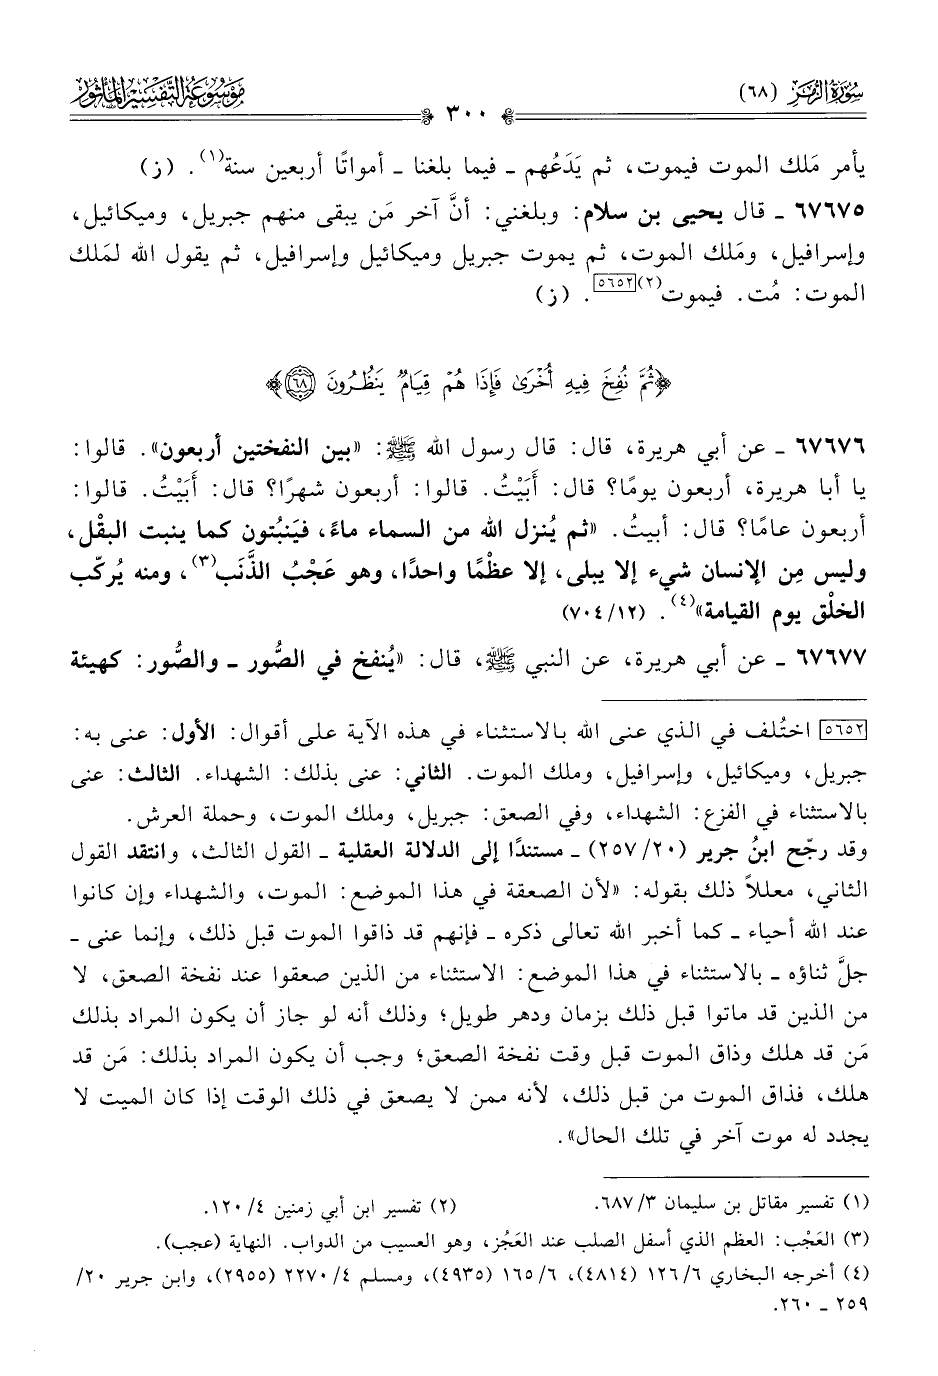 سُورَةُ الزُّمَر (٦٨)
٣٠٠
مَوْسُوعَة التَّفْسِير المَأْثُور
يأمر مَلك الموت فيموت، ثم يَدَعُهم ـ فيما بلغنا ـ أمواتًا أربعين سنة(١). (ز)
٦٧٦٧٥ ـ قال يحيى بن سلام: وبلغني: أنَّ آخر مَن يبقى منهم جبريل، وميكائيل،
وإسرافيل، ومَلك الموت، ثم يموت جبريل وميكائيل وإسرافيل، ثم يقول الله لمَلك
الموت: مُت. فيموت(٢)[٥٦٥٢]. (ز)
﴿ثُمَّ نُفِخَ فِيهِ أُخْرَىٰ فَإِذَا هُمْ قِيَامٌ يَنظُرُونَ ٦٨﴾
٦٧٦٧٦ ـ عن أبي هريرة، قال: قال رسول الله ﷺ: «بين النفختين أربعون». قالوا:
يا أبا هريرة، أربعون يومًا؟ قال: أَبَيْتُ. قالوا: أربعون شهرًا؟ قال: أَبَيْتُ. قالوا:
أربعون عامًا؟ قال: أبيتُ. «ثم يُنزل الله من السماء ماءً، فيَنبُتون كما ينبت البقْل،
وليس مِن الإنسان شيء إلا يبلى، إلا عظْمًا واحدًا، وهو عَجْبُ الذَّنَب(٣)، ومنه يُركّب
الخلْق يوم القيامة»(٤). (١٢/ ٧٠٤)
٦٧٦٧٧ ـ عن أبي هريرة، عن النبي ﷺ، قال: «يُنفخ في الصُّور ـ والصُّور: كهيئة
[٥٦٥٢] اختُلف في الذي عنى الله بالاستثناء في هذه الآية على أقوال: الأول: عنى به:
جبريل، وميكائيل، وإسرافيل، وملك الموت. الثاني: عنى بذلك: الشهداء. الثالث: عنى
بالاستثناء في الفزع: الشهداء، وفي الصعق: جبريل، وملك الموت، وحملة العرش.
وقد رجّح ابنُ جرير (٢٠/ ٢٥٧) ـ مستندًا إلى الدلالة العقلية ـ القول الثالث، وانتقد القول
الثاني، معللاً ذلك بقوله: «لأن الصعقة في هذا الموضع: الموت، والشهداء وإن كانوا
عند الله أحياء ـ كما أخبر الله تعالى ذكره ـ فإنهم قد ذاقوا الموت قبل ذلك، وإنما عنى ـ
جلَّ ثناؤه ـ بالاستثناء في هذا الموضع: الاستثناء من الذين صعقوا عند نفخة الصعق، لا
من الذين قد ماتوا قبل ذلك بزمان ودهر طويل؛ وذلك أنه لو جاز أن يكون المراد بذلك
مَن قد هلك وذاق الموت قبل وقت نفخة الصعق؛ وجب أن يكون المراد بذلك: مَن قد
هلك، فذاق الموت من قبل ذلك، لأنه ممن لا يصعق في ذلك الوقت إذا كان الميت لا
يجدد له موت آخر في تلك الحال».
(١) تفسير مقاتل بن سليمان ٣/ ٦٨٧. (٢) تفسير ابن أبي زمنين ٤/ ١٢٠.
(٣) العَجْب: العظم الذي أسفل الصلب عند العَجُز، وهو العسيب من الدواب. النهاية (عجب).
(٤) أخرجه البخاري ٦/ ١٢٦ (٤٨١٤)، ٦/ ١٦٥ (٤٩٣٥)، ومسلم ٤/ ٢٢٧٠ (٢٩٥٥)، وابن جرير ٢٠/
٢٥٩ ـ ٢٦٠.